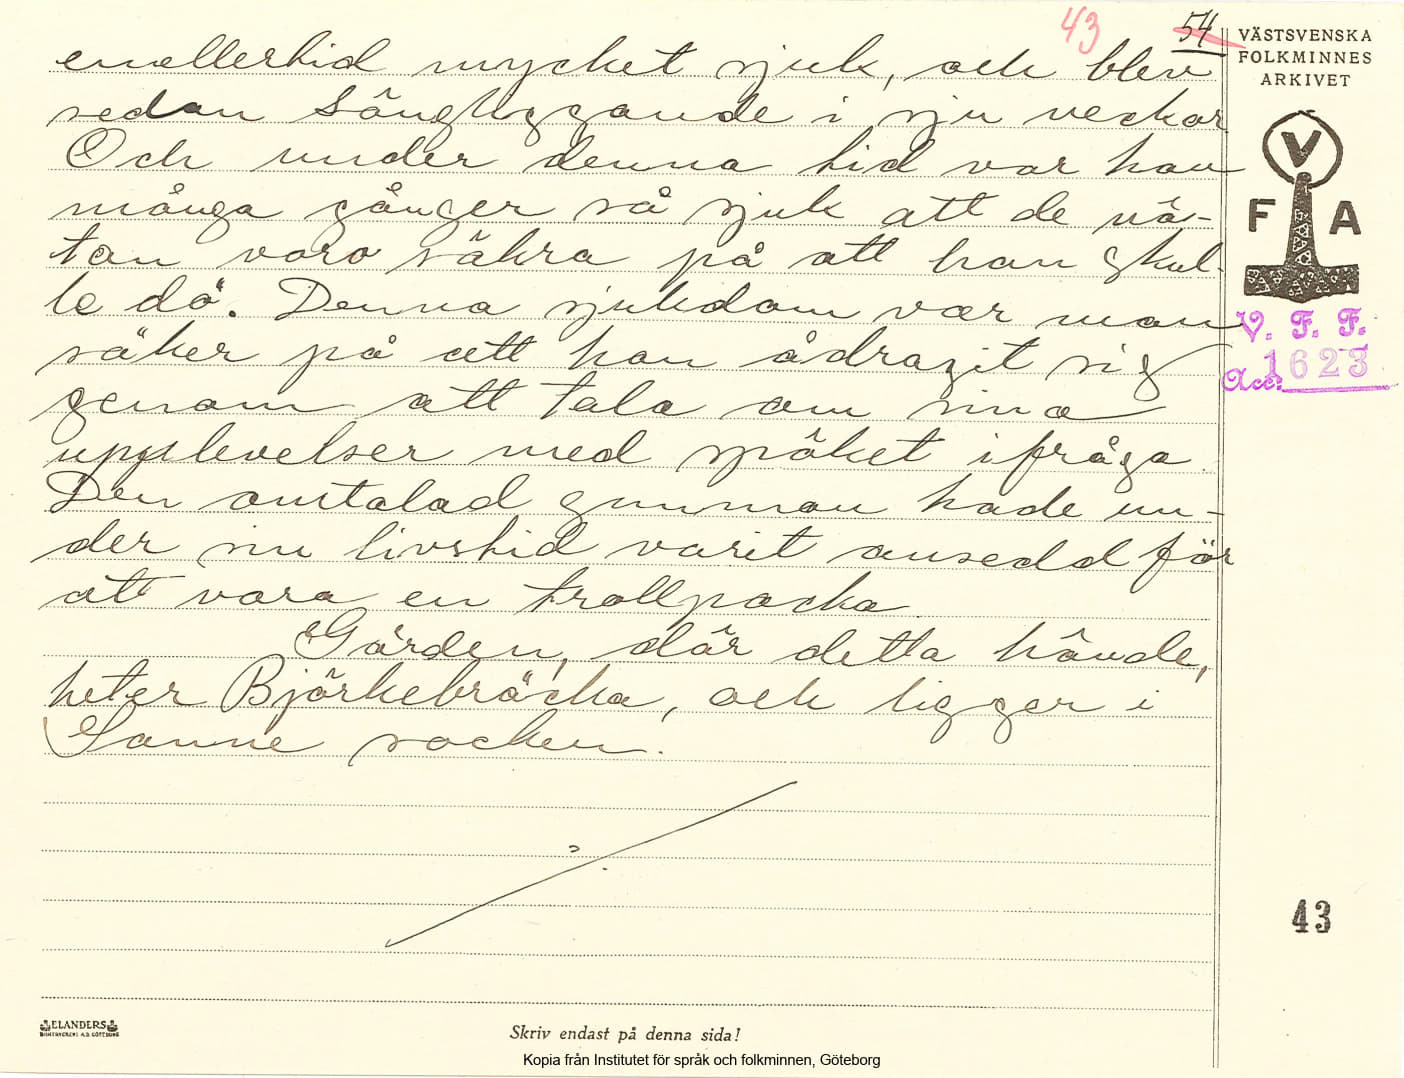 43
54
VÄSTSVENSKA
FOLKMINNES
ARKIVET
emellertid mycket sjuk, och blev
sedan sängliggande i sju veckor
Och under denna tid var han
många gånger så sjuk att de nä-
tan voro säkra på att han skul-
le dö. Denna sjukdom var man
säker på att han ådragit sig
genom att tala om sina
upplevelser med spöket ifråga.
Den omtalad gumman hade un-
der sin livstid varit ansedd för
att vara en trollpacka
Gården, där detta hände,
heter Björkebräcka, och ligger i
Sanne socken.
V
F A
V. F. F.
Acc. 1623
43
ELANDERS
BOKTRYCKERI A.B. GÖTEBORG
Skriv endast på denna sida!
Kopia från Institutet för språk och folkminnen, Göteborg